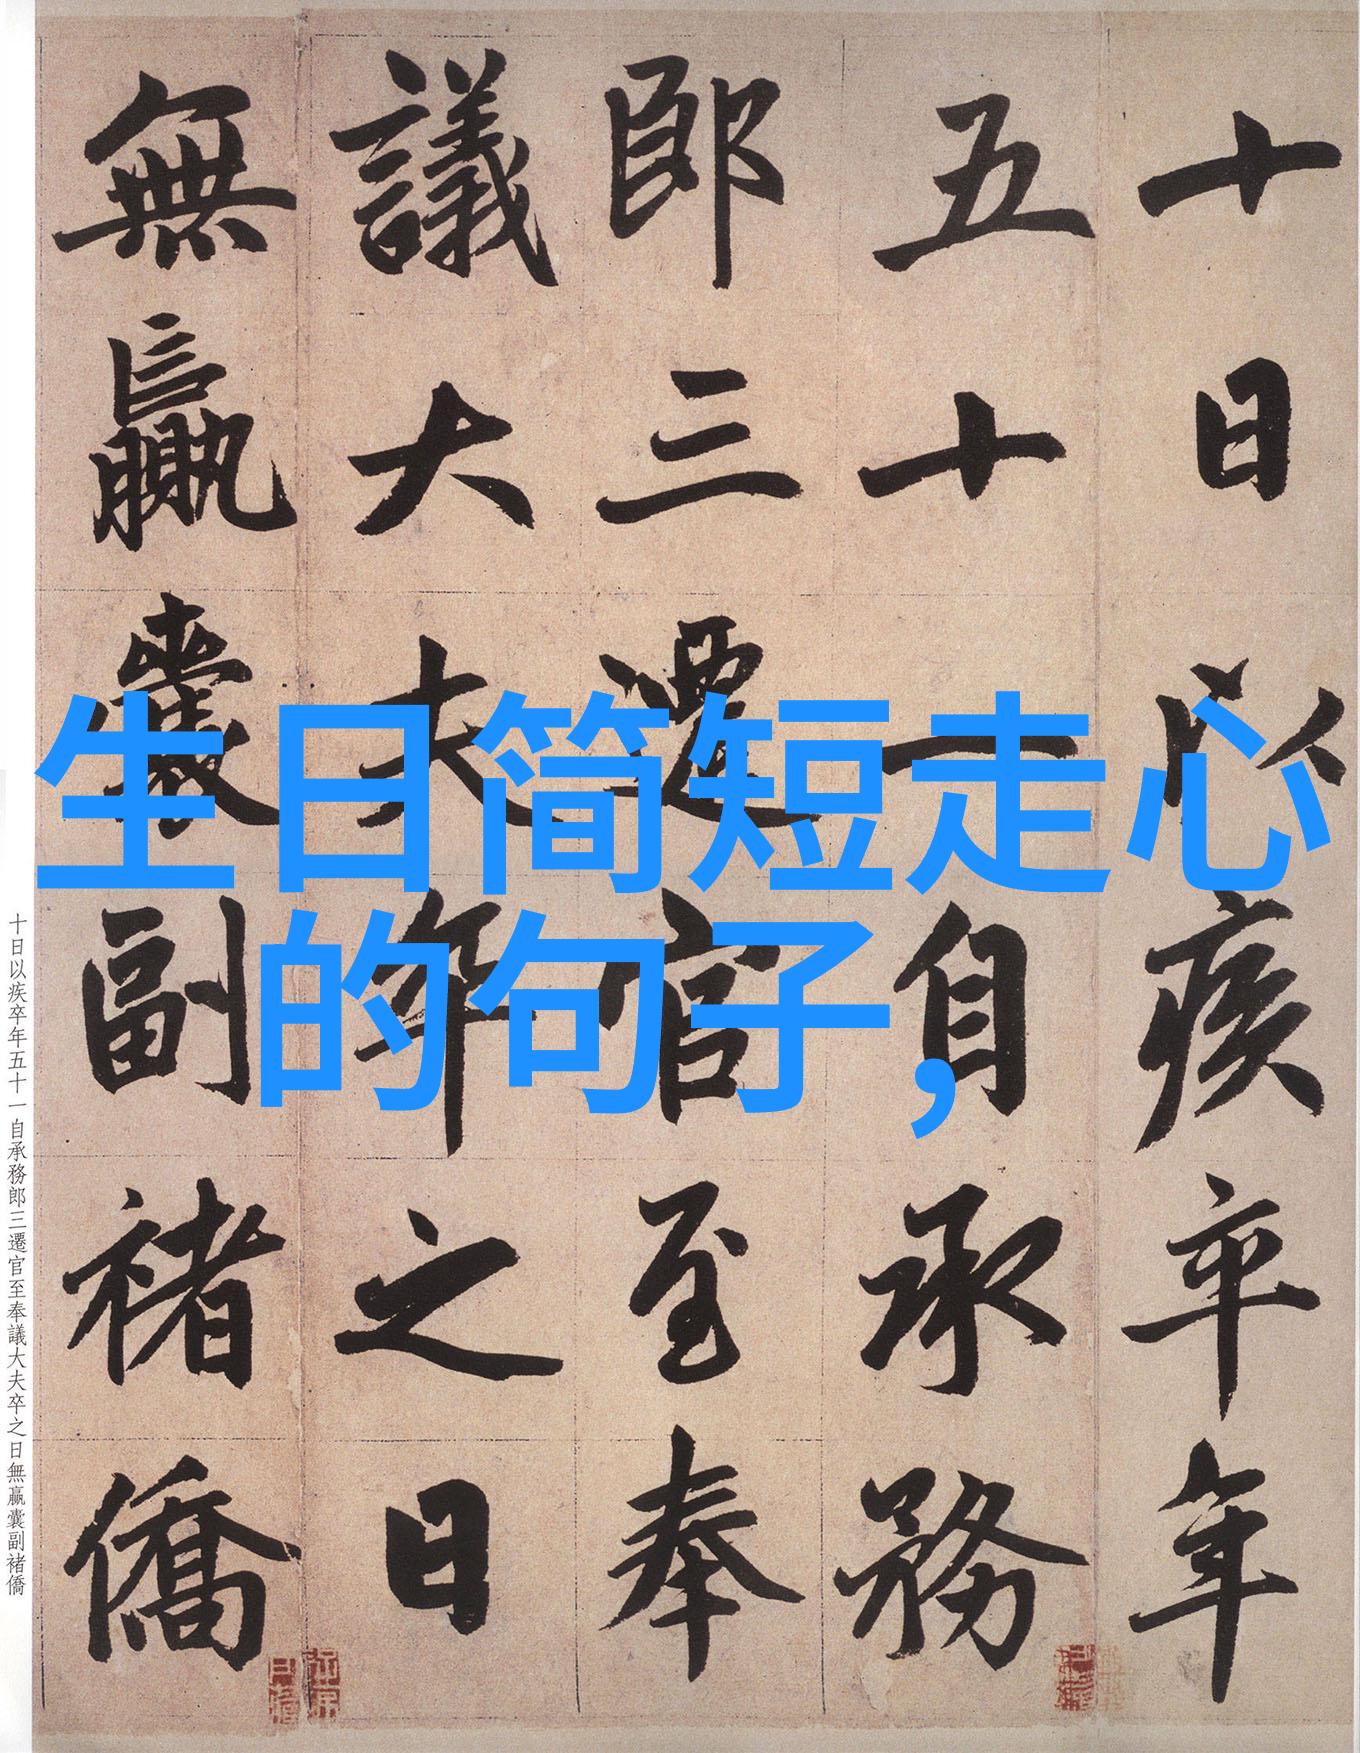 十日以疾卒年
五十一自承務
郎三遷官至奉
議大夫卒之日
無贏囊副褚僑
生日简短走心
的句子，
十日以疾卒年五十一自承務郎三遷官至奉議大夫卒之日無贏囊副褚僑